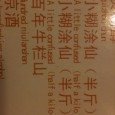 小糊涂仙（半斤）
A little confused (half a kilo
小糊涂仙（半斤）
A little confused (half a kilo
百年牛栏山
hundred niulanshan
京酒